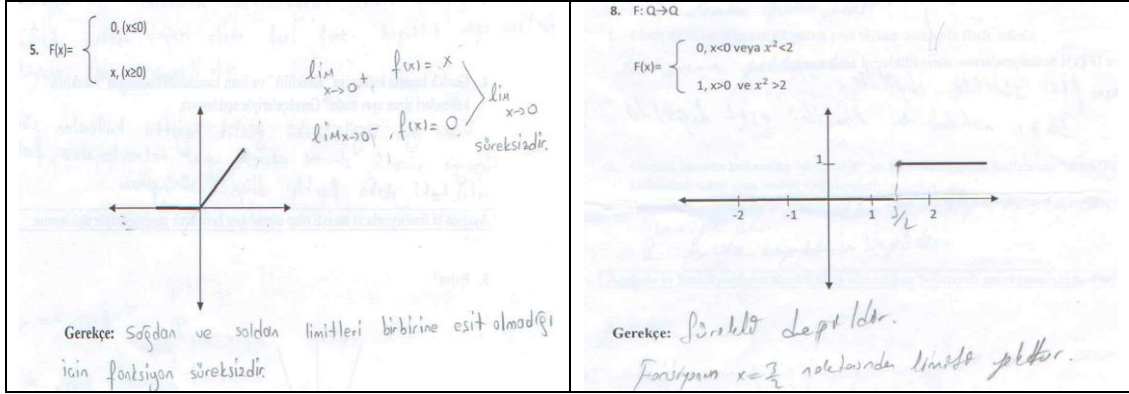 5. F(x)=
0, (x≤0)
x, (x≥0)
lim x→0⁺ f(x) = x
lim x→0⁻, f(x) = 0
lim x→0
süreksizdir.
Gerekçe: Sağdan ve soldan limitleri birbirine eşit olmadığı
için fonksiyon süreksizdir.
8. F: Q→Q
F(x)=
0, x<0 veya x²<2
1, x>0 ve x²>2
1
-2 -1 1 2
Gerekçe: Sürekli değildir.
Fonksiyonun x= noktasında limiti yoktur.